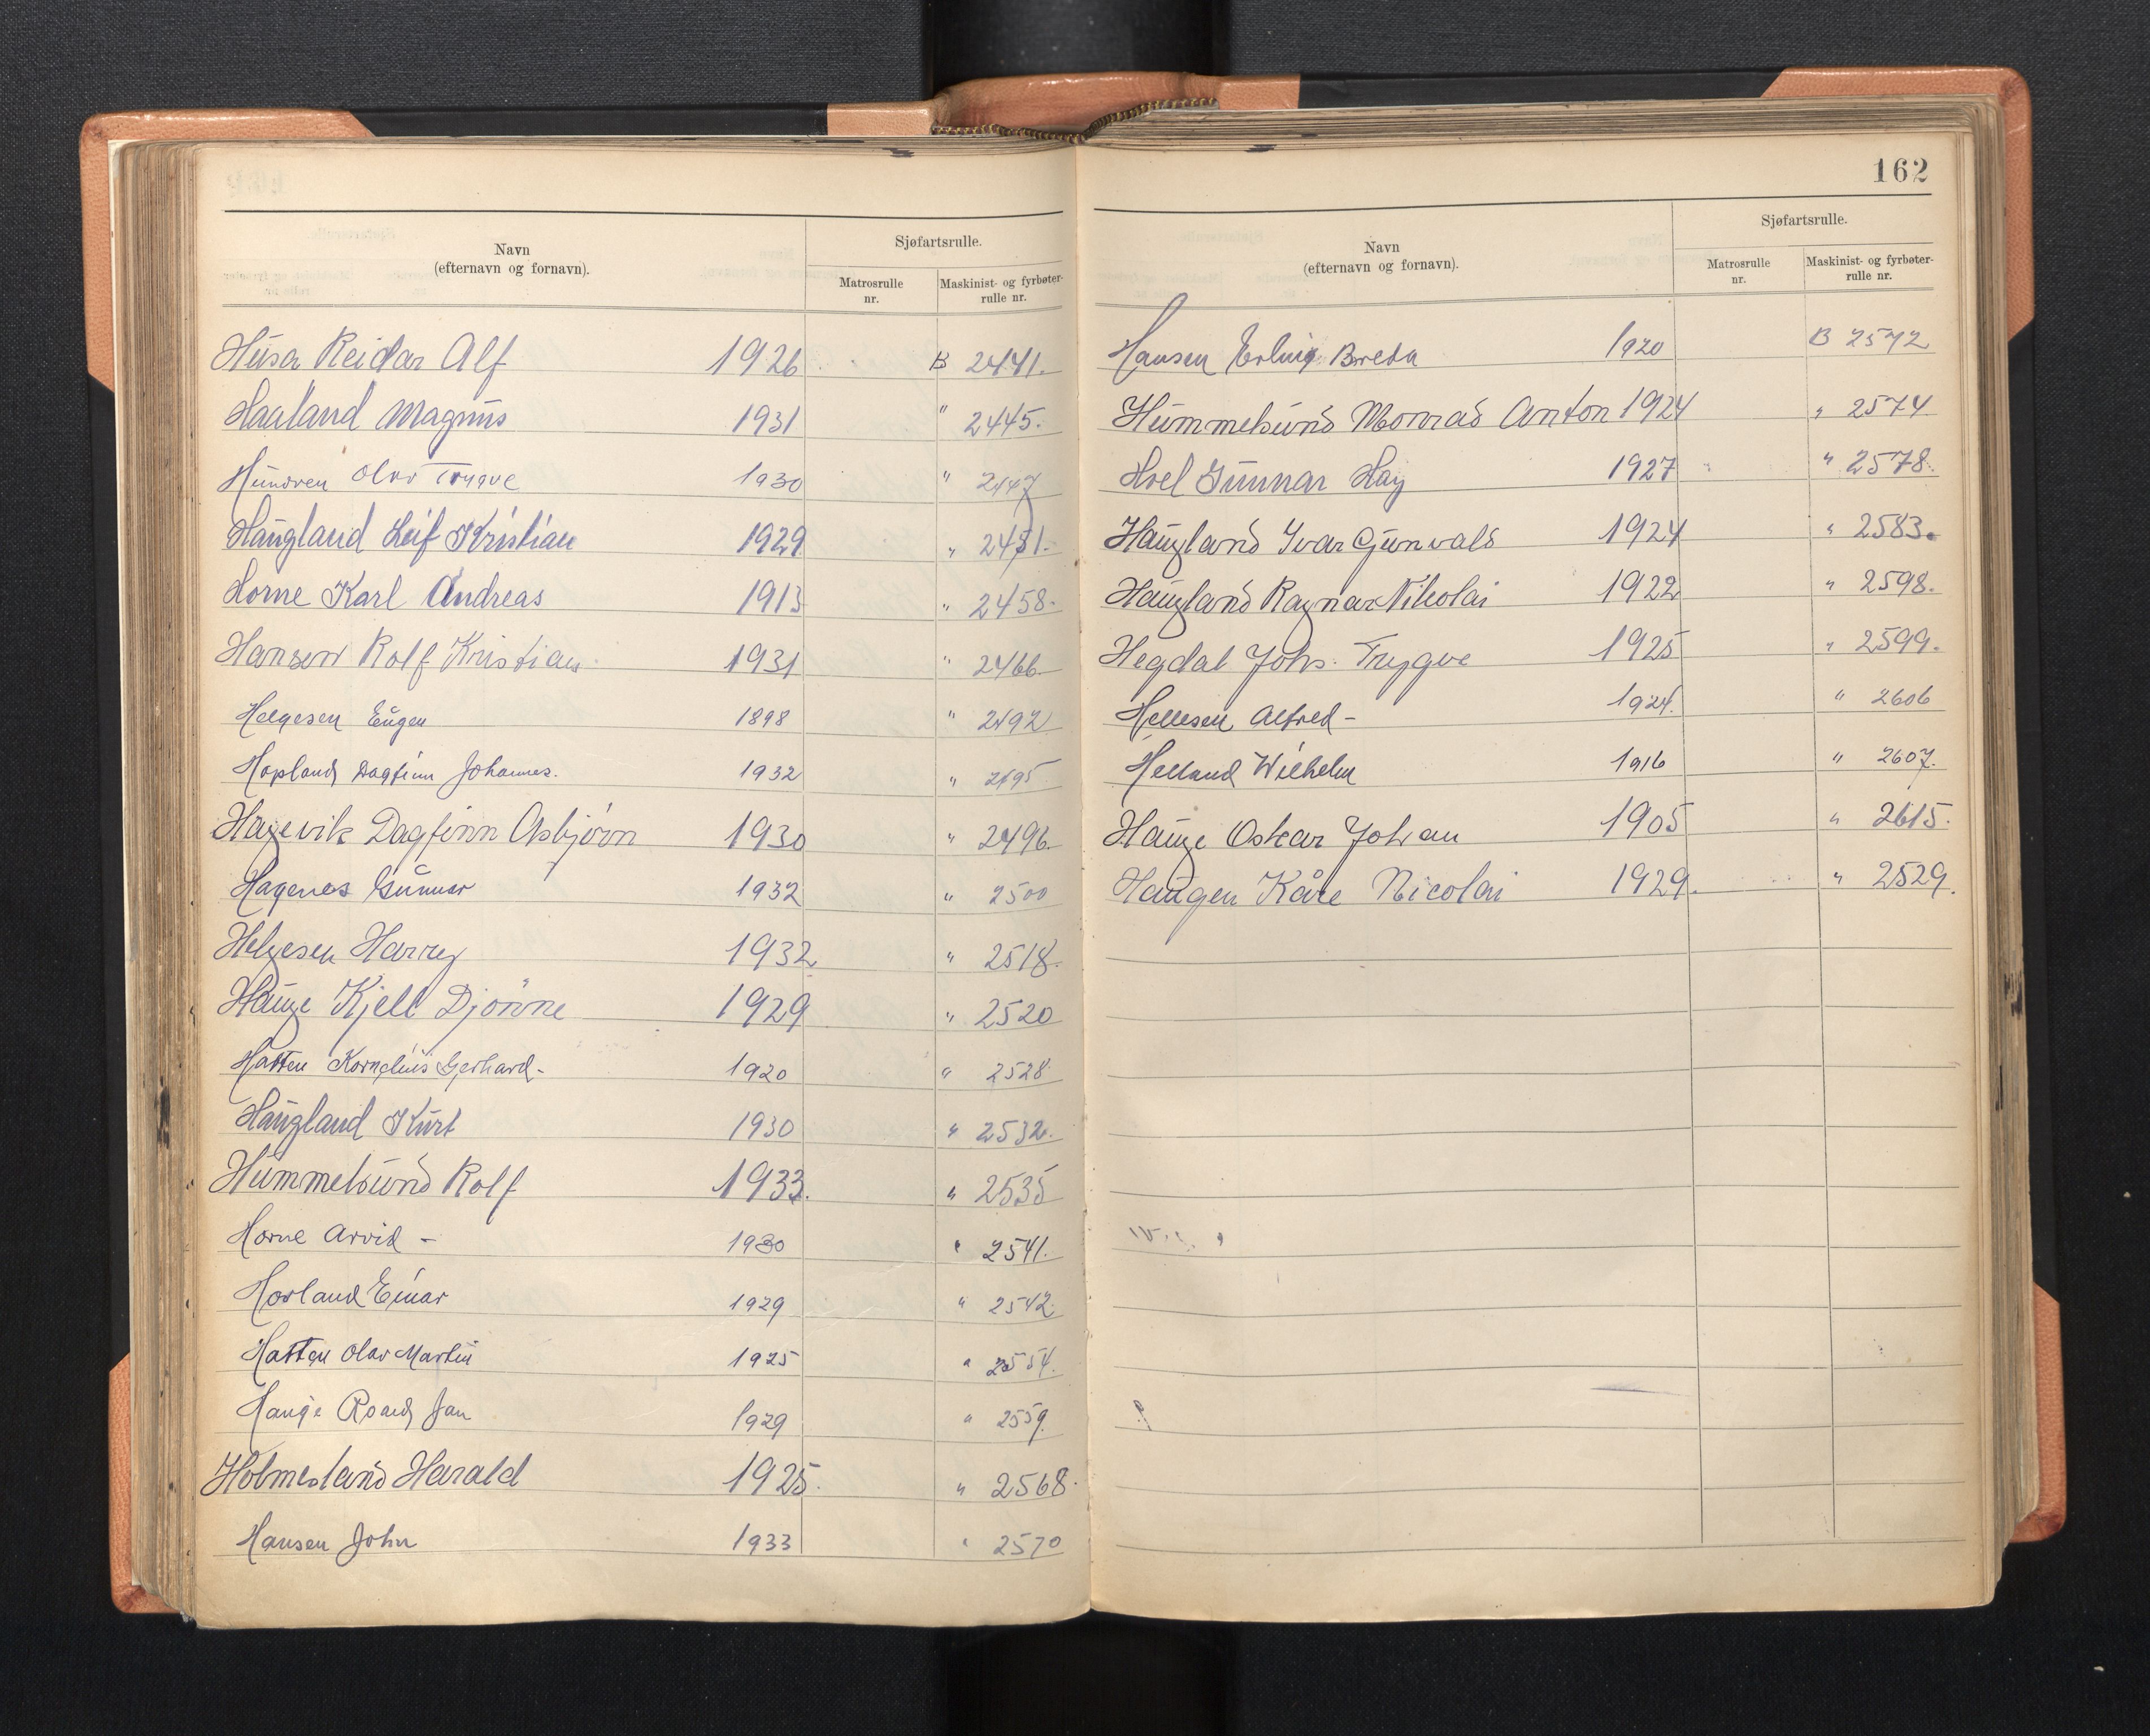 Navn
(efternavn og fornavn).
Sjøfartsrulle.
Matrosrulle
nr.
Maskinist- og fyrbøter-
rulle nr.
Husa Reidar Alf 1926 B 2441.
Haaland Magnus 1931 " 2445.
Hundven Olav Trygve 1930 " 2447
Haugland Leif Kristian 1929 " 2451.
Horne Karl Andreas 1913 " 2458.
Hansen Rolf Kristian 1931 " 2466.
Helgesen Eugen 1898 " 2492
Hopland Dagfinn Johannes. 1932 " 2495
Hagevik Dagfinn Asbjörn 1930 " 2496.
Hagenes Gunnar 1932 " 2500
Helgesen Harry 1932 " 2518.
Hauge Kjell Djönne 1929 " 2520
Hatten Kornelius Gerhard - 1920 " 2528
Haugland Kurt 1930 " 2532.
Hummelsund Rolf 1933. " 2535
Horne Arvid - 1930 " 2541.
Hovland Einar 1929 " 2542.
Hatten Olav Martin 1925 " 2554.
Hauge Roald Jan 1929 " 2559.
Holmesland Harald 1925. " 2568.
Hansen John 1933 " 2570
162
Navn
(efternavn og fornavn).
Sjøfartsrulle.
Matrosrulle
nr.
Maskinist- og fyrbøter-
rulle nr.
Hansen Erling Breda 1920 B 2572
Hummelsund Monrad Anton 1924 " 2574
Hoel Gunnar Hay 1927 " 2578.
Haugland Ivar Gunvald 1924 " 2583.
Haugland Ragnar Nikolai 1922 " 2598.
Hegdal Johs. Trygve 1925 " 2599.
Hellesen Alfred - 1924. " 2606
Helland Wilhelm 1916 " 2607.
Hauge Oskar Johan 1905 " 2615.
Haugen Kåre Nicolai 1929. " 2529.